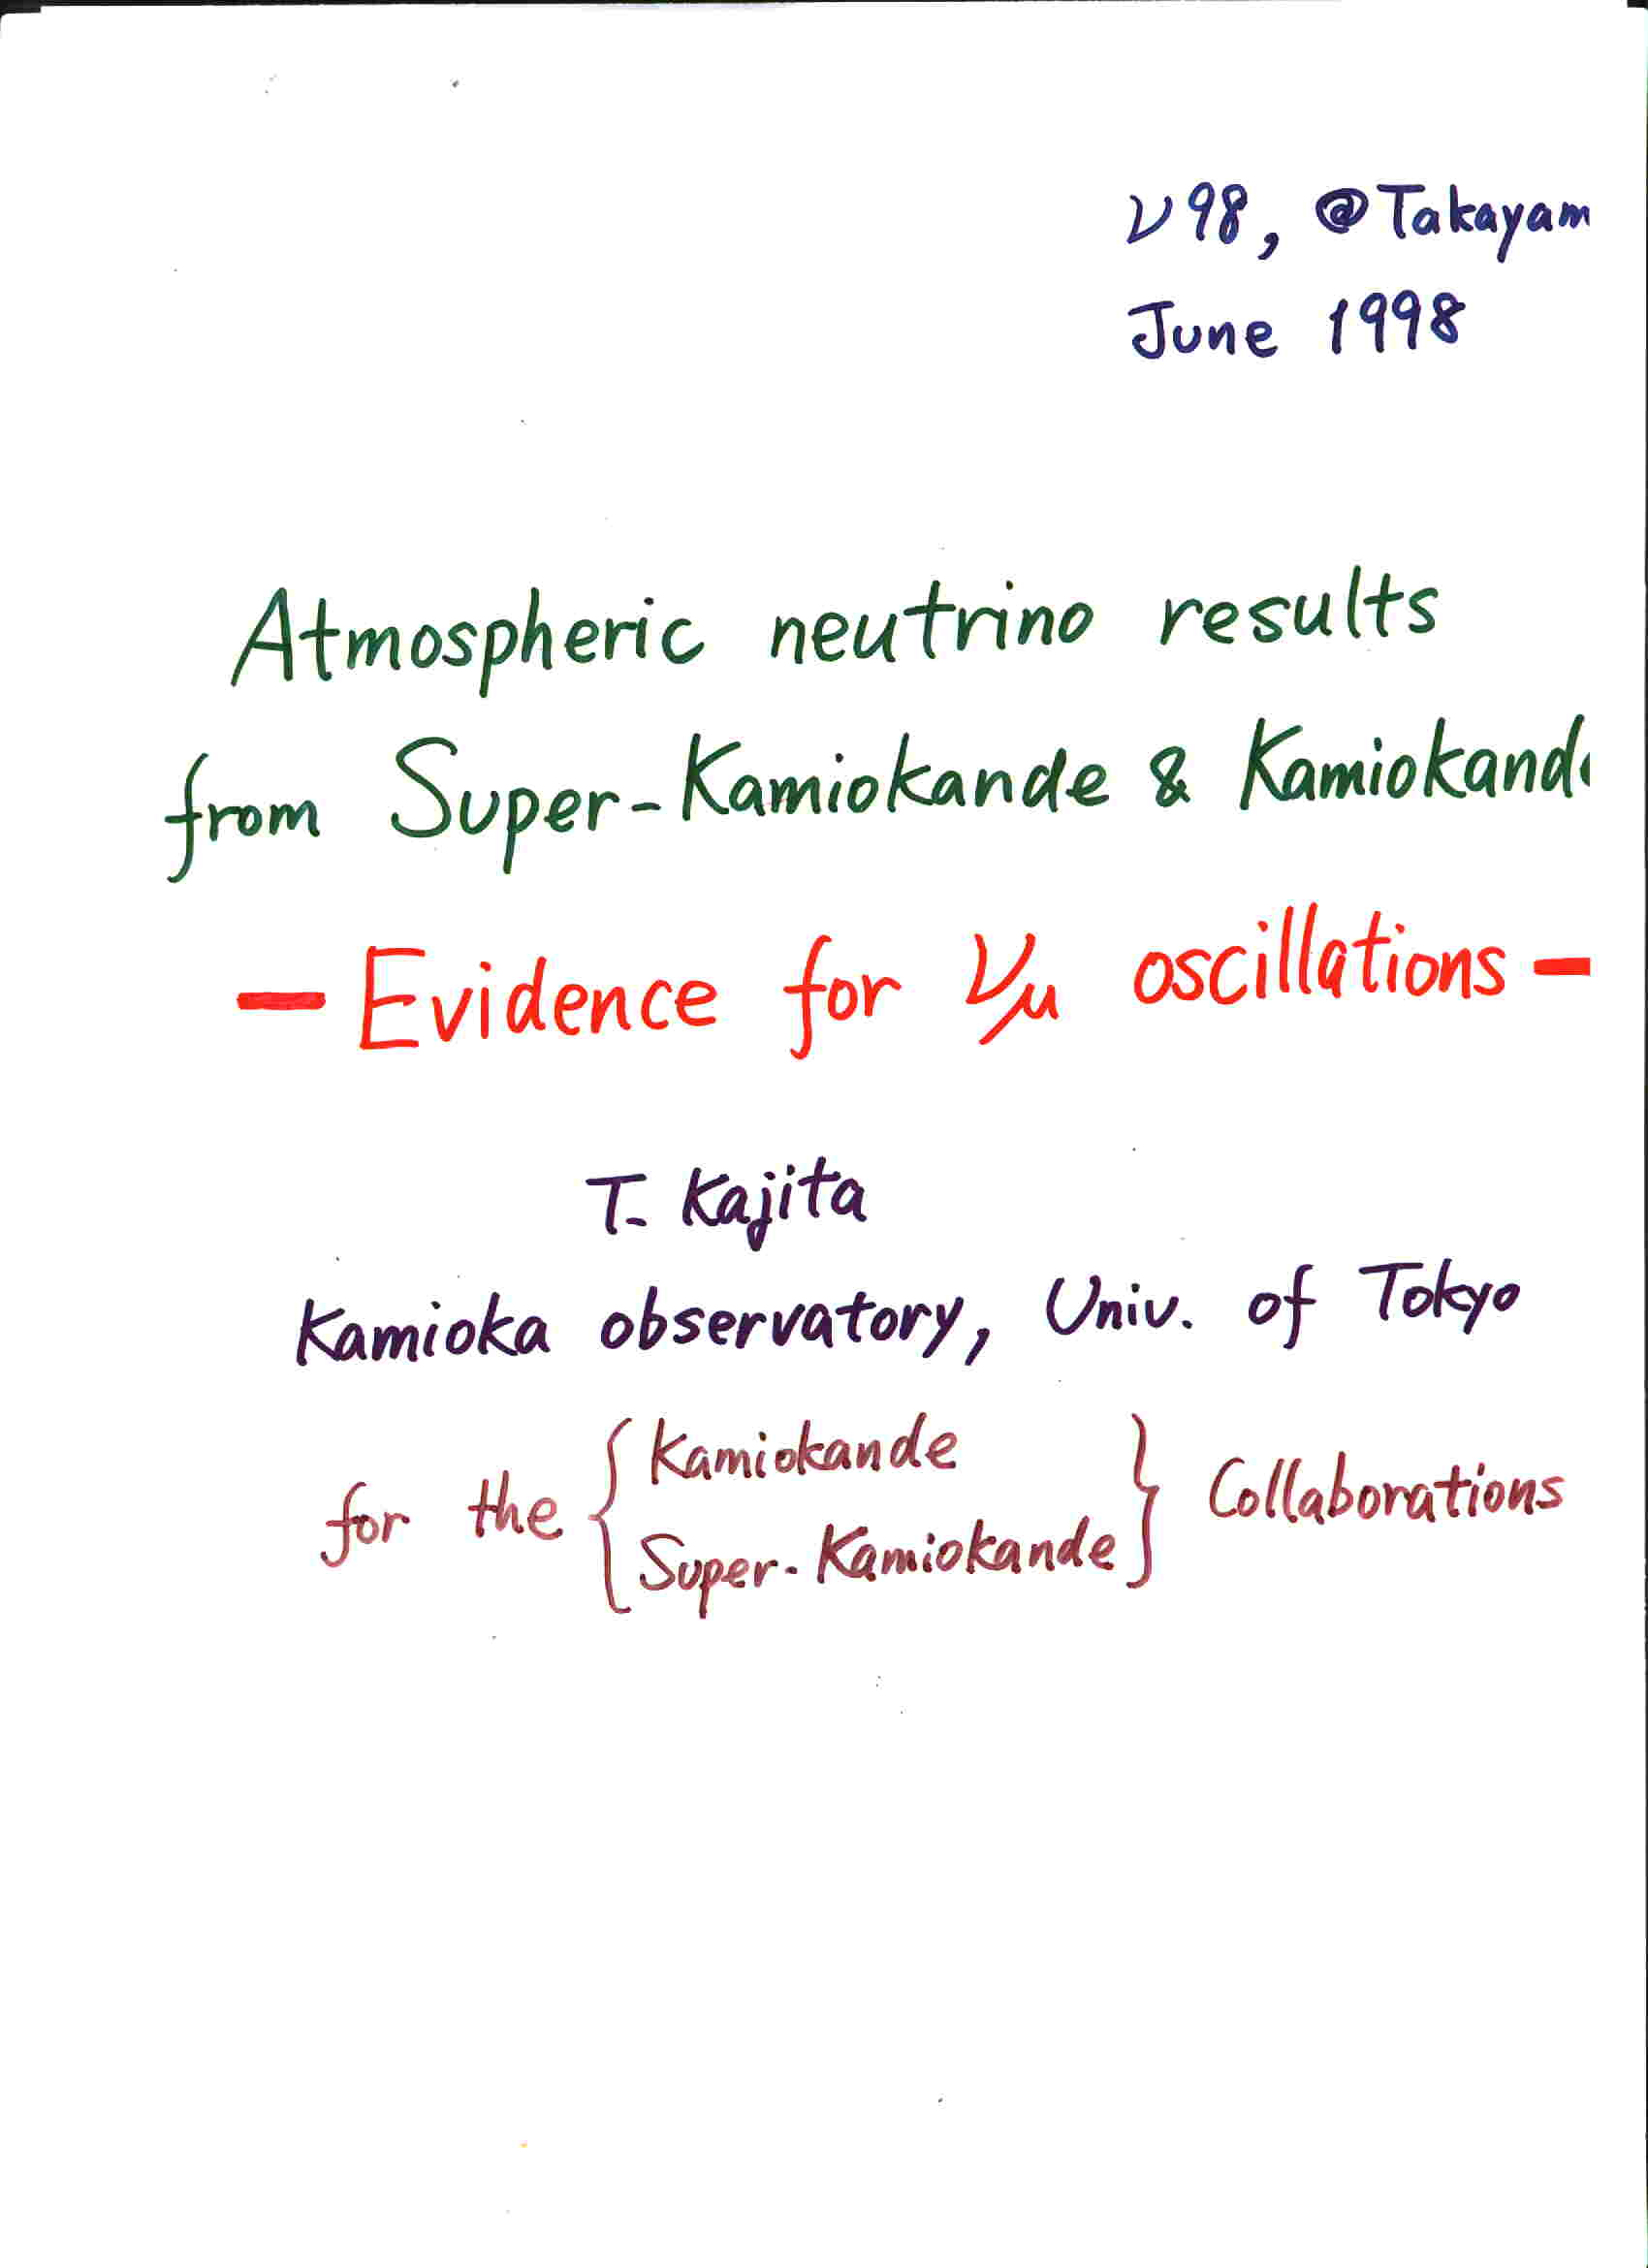 ν98, @Takayam
June 1998
Atmospheric neutrino results
from Super-Kamiokande & Kamiokande
— Evidence for νμ oscillations —
T. Kajita
Kamioka observatory, Univ. of Tokyo
for the { Kamiokande
Super-Kamiokande } Collaborations